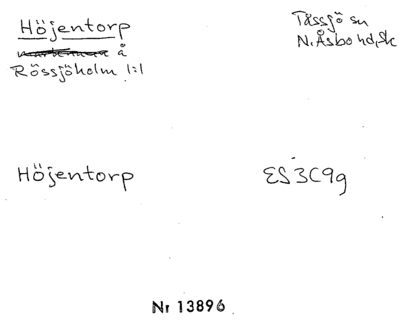 Höjentorp
å
Rössjöholm 1:1
Tåssjö sn
N. Åsbo hd, Sk
Höjentorp
ES 3C9g
Nr 13896